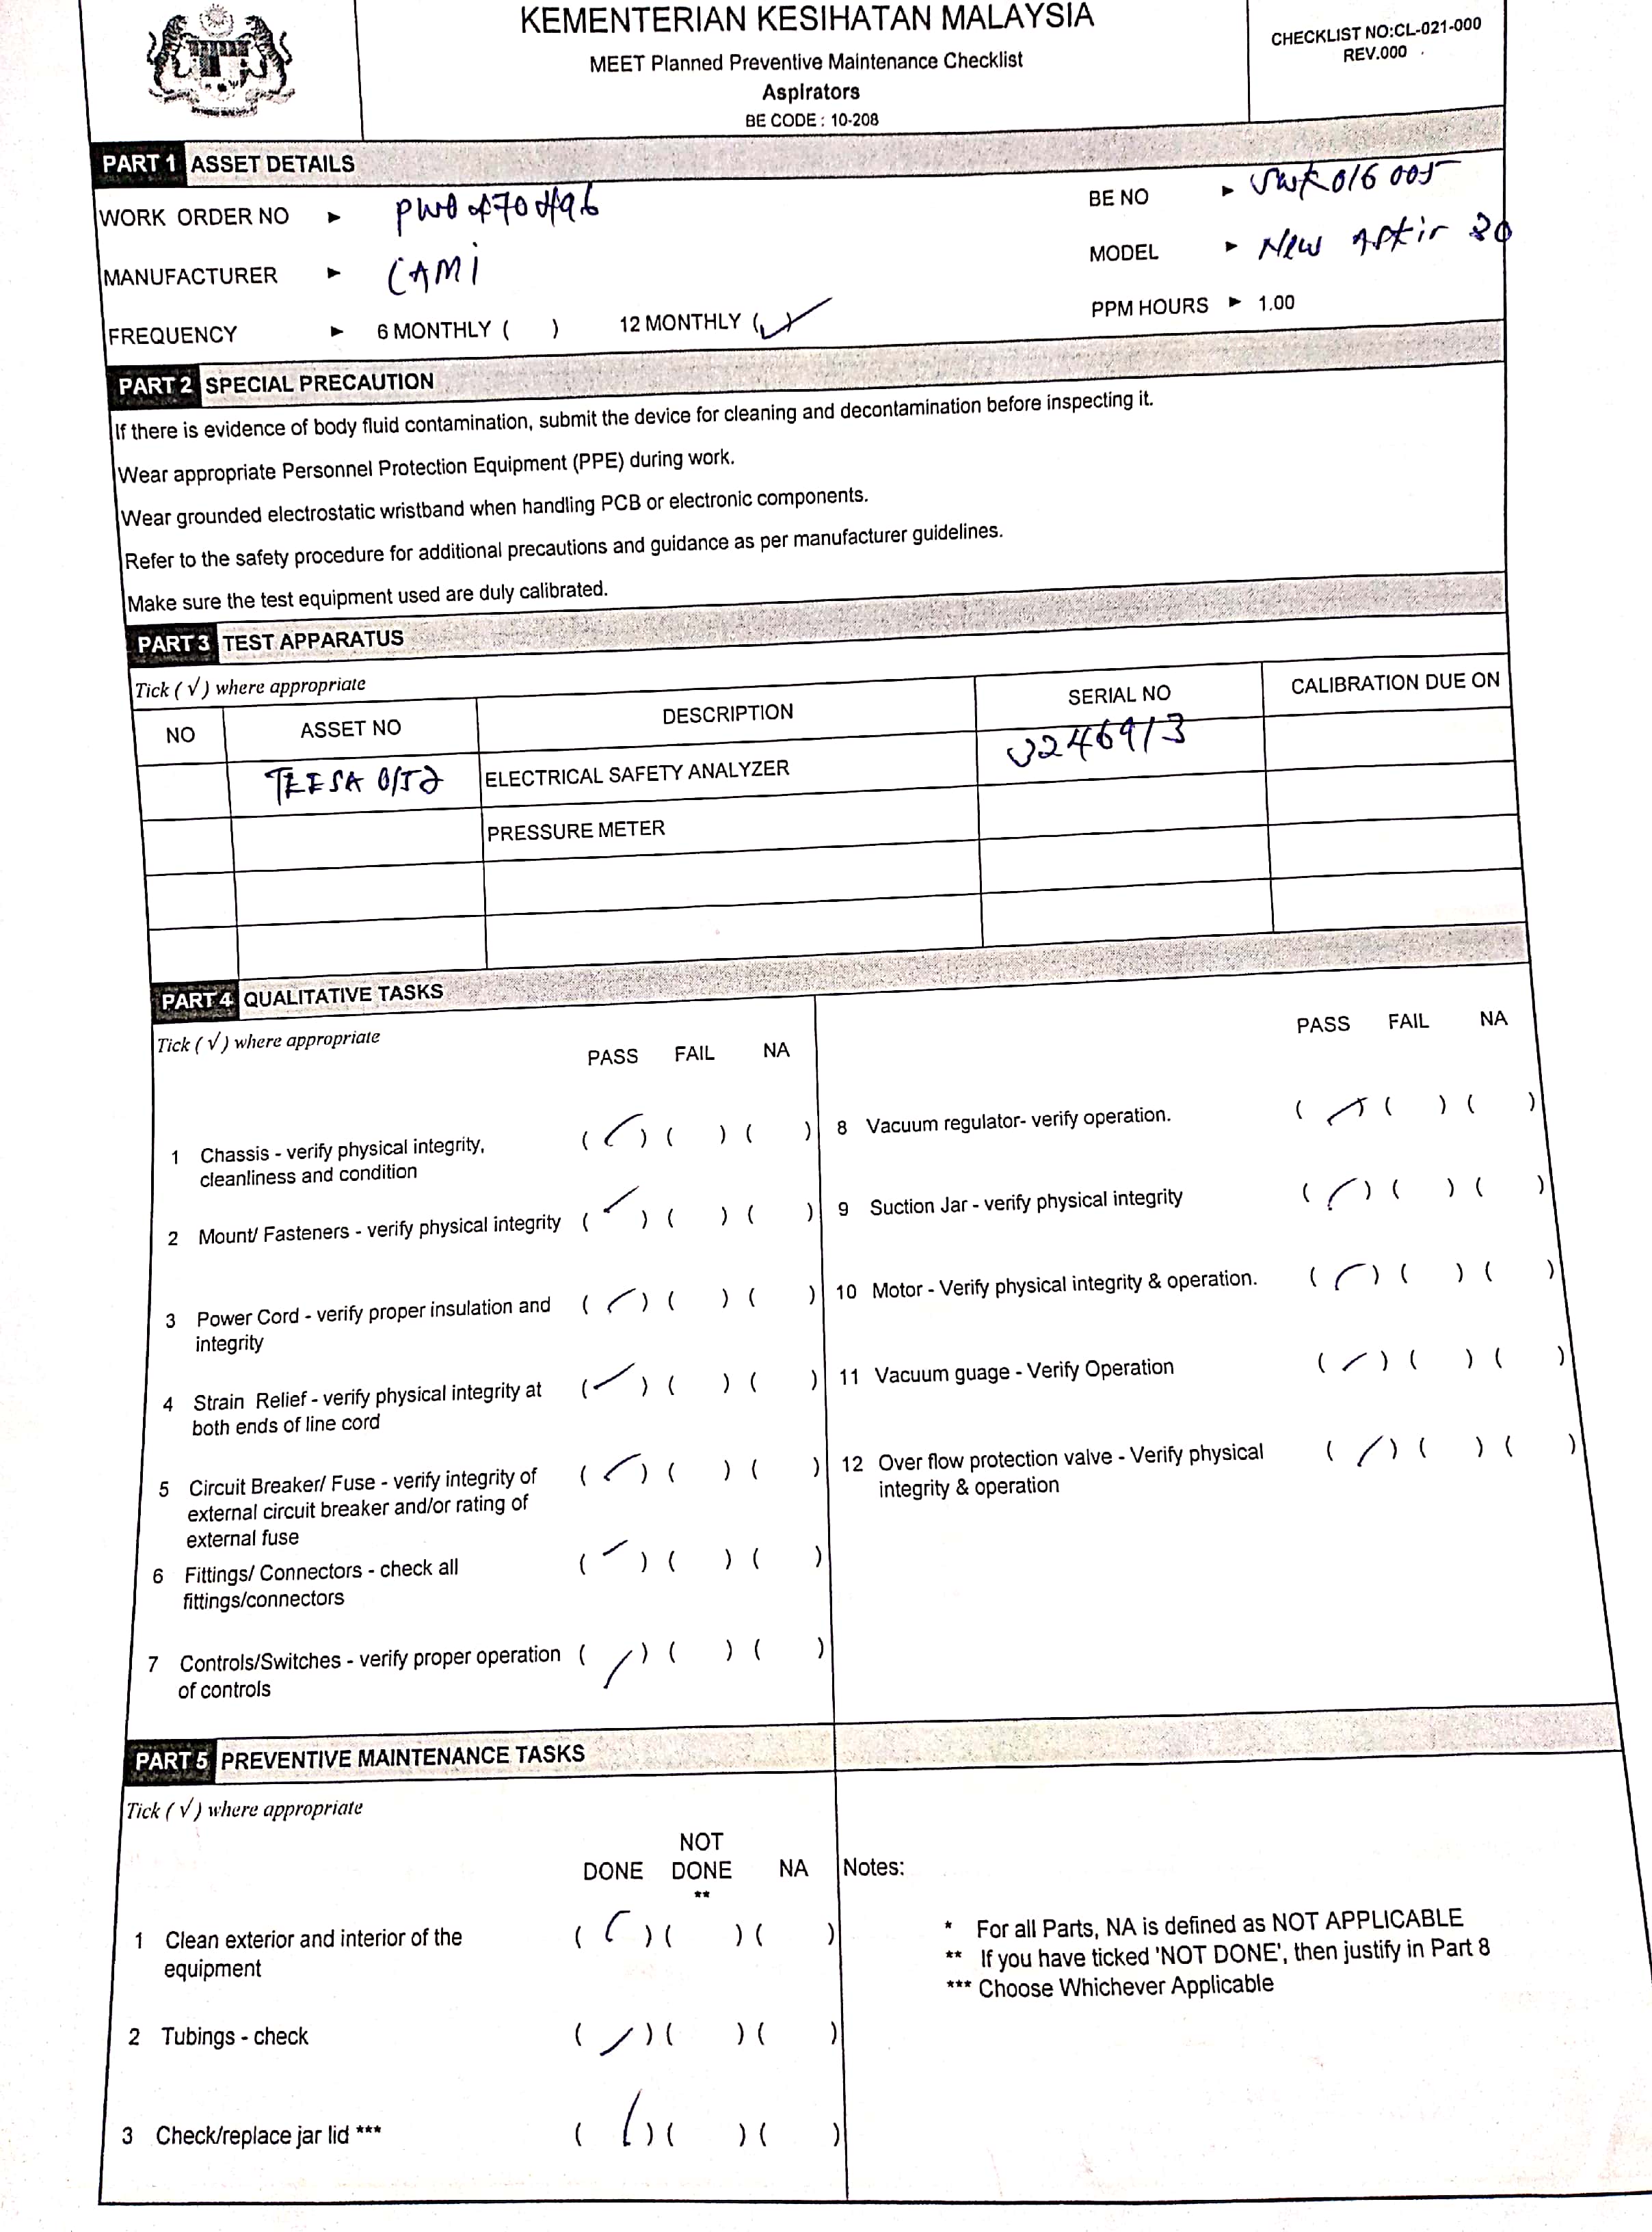 KEMENTERIAN KESIHATAN MALAYSIA
MEET Planned Preventive Maintenance Checklist
Aspirators
BE CODE : 10-208
CHECKLIST NO:CL-021-000
REV.000
PART 1 ASSET DETAILS
WORK ORDER NO ►
BE NO ► 016005
MANUFACTURER ► CAMI
MODEL ► New Askir 30
FREQUENCY ► 6 MONTHLY ( ) 12 MONTHLY (✓)
PPM HOURS ► 1.00
PART 2 SPECIAL PRECAUTION
If there is evidence of body fluid contamination, submit the device for cleaning and decontamination before inspecting it.
Wear appropriate Personnel Protection Equipment (PPE) during work.
Wear grounded electrostatic wristband when handling PCB or electronic components.
Refer to the safety procedure for additional precautions and guidance as per manufacturer guidelines.
Make sure the test equipment used are duly calibrated.
PART 3 TEST APPARATUS
Tick ( √ ) where appropriate
NO ASSET NO DESCRIPTION SERIAL NO CALIBRATION DUE ON
ELECTRICAL SAFETY ANALYZER
PRESSURE METER
PART 4 QUALITATIVE TASKS
Tick ( √ ) where appropriate
PASS FAIL NA
1 Chassis - verify physical integrity, (✓) ( ) ( )
cleanliness and condition
2 Mount/ Fasteners - verify physical integrity (✓) ( ) ( )
3 Power Cord - verify proper insulation and (✓) ( ) ( )
integrity
4 Strain Relief - verify physical integrity at (✓) ( ) ( )
both ends of line cord
5 Circuit Breaker/ Fuse - verify integrity of (✓) ( ) ( )
external circuit breaker and/or rating of
external fuse
6 Fittings/ Connectors - check all (✓) ( ) ( )
fittings/connectors
7 Controls/Switches - verify proper operation (✓) ( ) ( )
of controls
PASS FAIL NA
8 Vacuum regulator- verify operation. (✓) ( ) ( )
9 Suction Jar - verify physical integrity (✓) ( ) ( )
10 Motor - Verify physical integrity & operation. (✓) ( ) ( )
11 Vacuum guage - Verify Operation (✓) ( ) ( )
12 Over flow protection valve - Verify physical (✓) ( ) ( )
integrity & operation
PART 5 PREVENTIVE MAINTENANCE TASKS
Tick ( √ ) where appropriate
NOT
DONE DONE NA
**
1 Clean exterior and interior of the (✓) ( ) ( )
equipment
2 Tubings - check (✓) ( ) ( )
3 Check/replace jar lid *** (✓) ( ) ( )
Notes:
* For all Parts, NA is defined as NOT APPLICABLE
** If you have ticked 'NOT DONE', then justify in Part 8
*** Choose Whichever Applicable